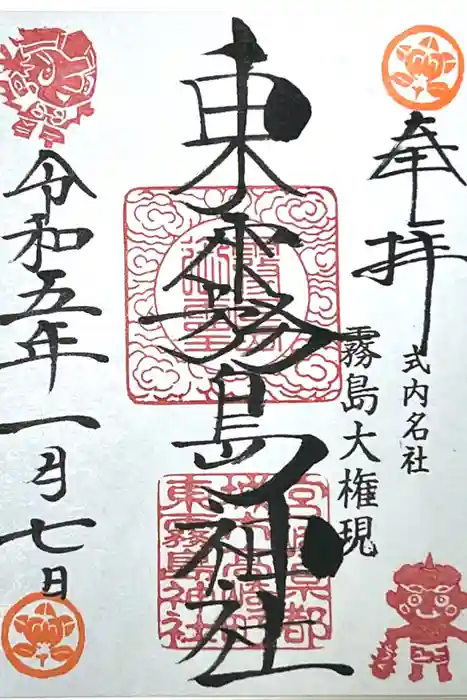 奉拝
式内名社
霧島大権現
東霧島神社
令和五年一月七日
東霧島神社